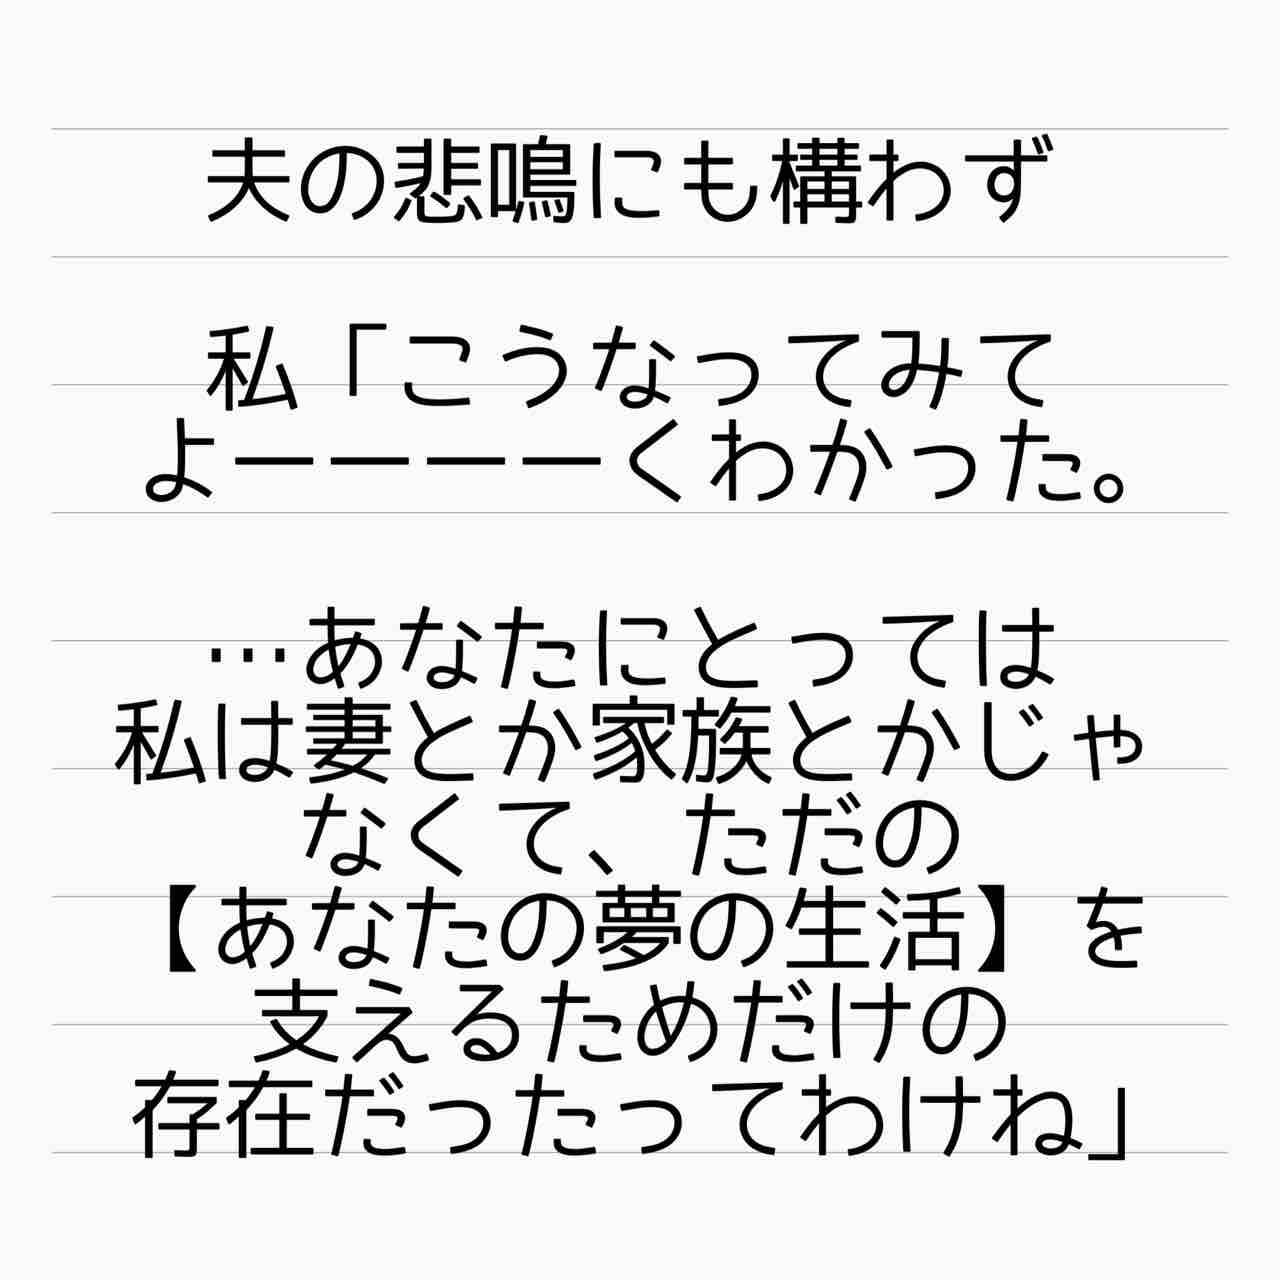 夫の悲鳴にも構わず
私「こうなってみて
よーーーーくわかった。
…あなたにとっては
私は妻とか家族とかじゃ
なくて、ただの
【あなたの夢の生活】を
支えるためだけの
存在だったってわけね」